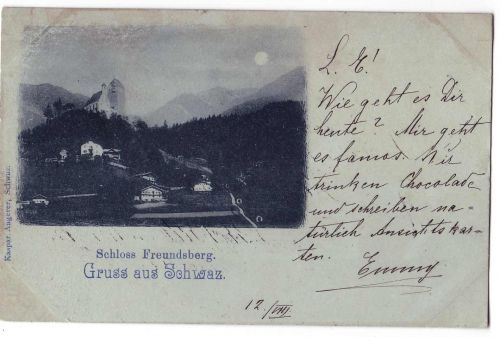 L. E.!
Wie geht es Dir
heute? Mir geht
es famos. Wir
trinken Chocolade
und schreiben na-
türlich Ansichtskar-
ten.
Emmy
Kaspar Angerer, Schwaz.
Schloss Freundsberg.
Gruss aus Schwaz.
12./VIII.